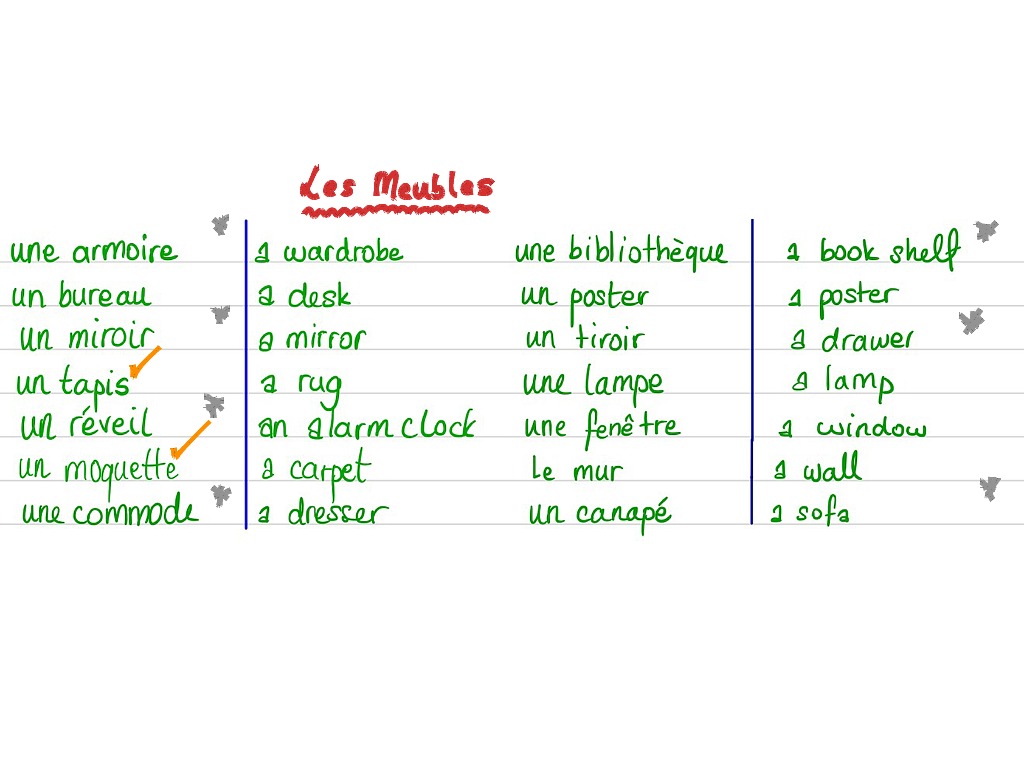 Les Meubles
une armoire a wardrobe une bibliothèque a book shelf
un bureau a desk un poster a poster
un miroir a mirror un tiroir a drawer
un tapis a rug une lampe a lamp
un réveil an alarm clock une fenêtre a window
un moquette a carpet le mur a wall
une commode a dresser un canapé a sofa